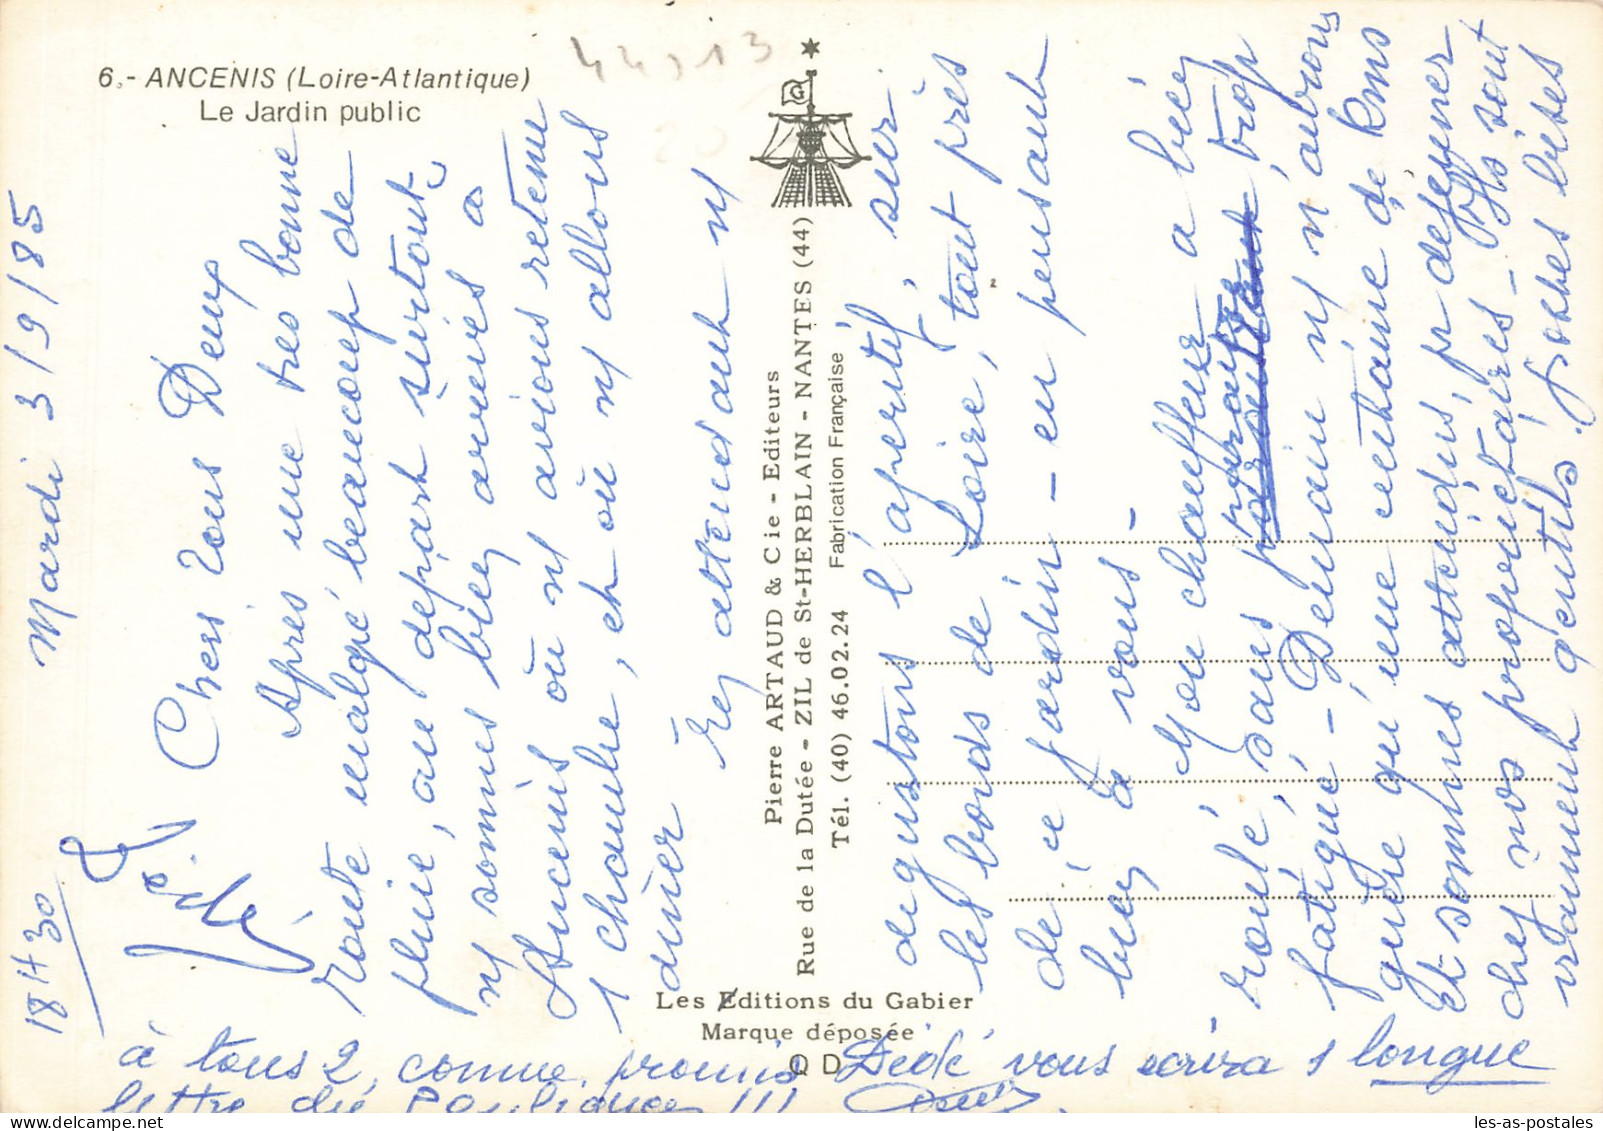 6.- ANCENIS (Loire-Atlantique)
Le Jardin public
44313
Mardi 3/9/85
18H30
Chers Vous Deux
Après une très bonne
route malgré beaucoup de
pluie, au départ surtout,
ns sommes bien arrivés à
Ancenis où ns avions retenu
1 chambre, et où ns allons
dîner
En attendant ns
dégustons l'apéritif, sur
les bords de Loire, tout près
de ce jardin - en pensant
bien à vous -
Mon chauffeur a bien
roulé, sans pour autant trop
fatigué - Demain ns n'aurons
guère qu'une centaine de kms
Et sommes attendus, pr déjeuner
chez nos propriétaires - Ils sont
vraiment gentils. Grosses bises
à tous 2, comme promis Dédé vous écrira 1 longue
lettre de
!!!
Dédé
Pierre ARTAUD & Cie - Editeurs
Rue de la Dutée - ZIL de St-HERBLAIN - NANTES (44)
Tél. (40) 46.02.24 Fabrication Française
Les Editions du Gabier
Marque déposée
QD
les-as-postales